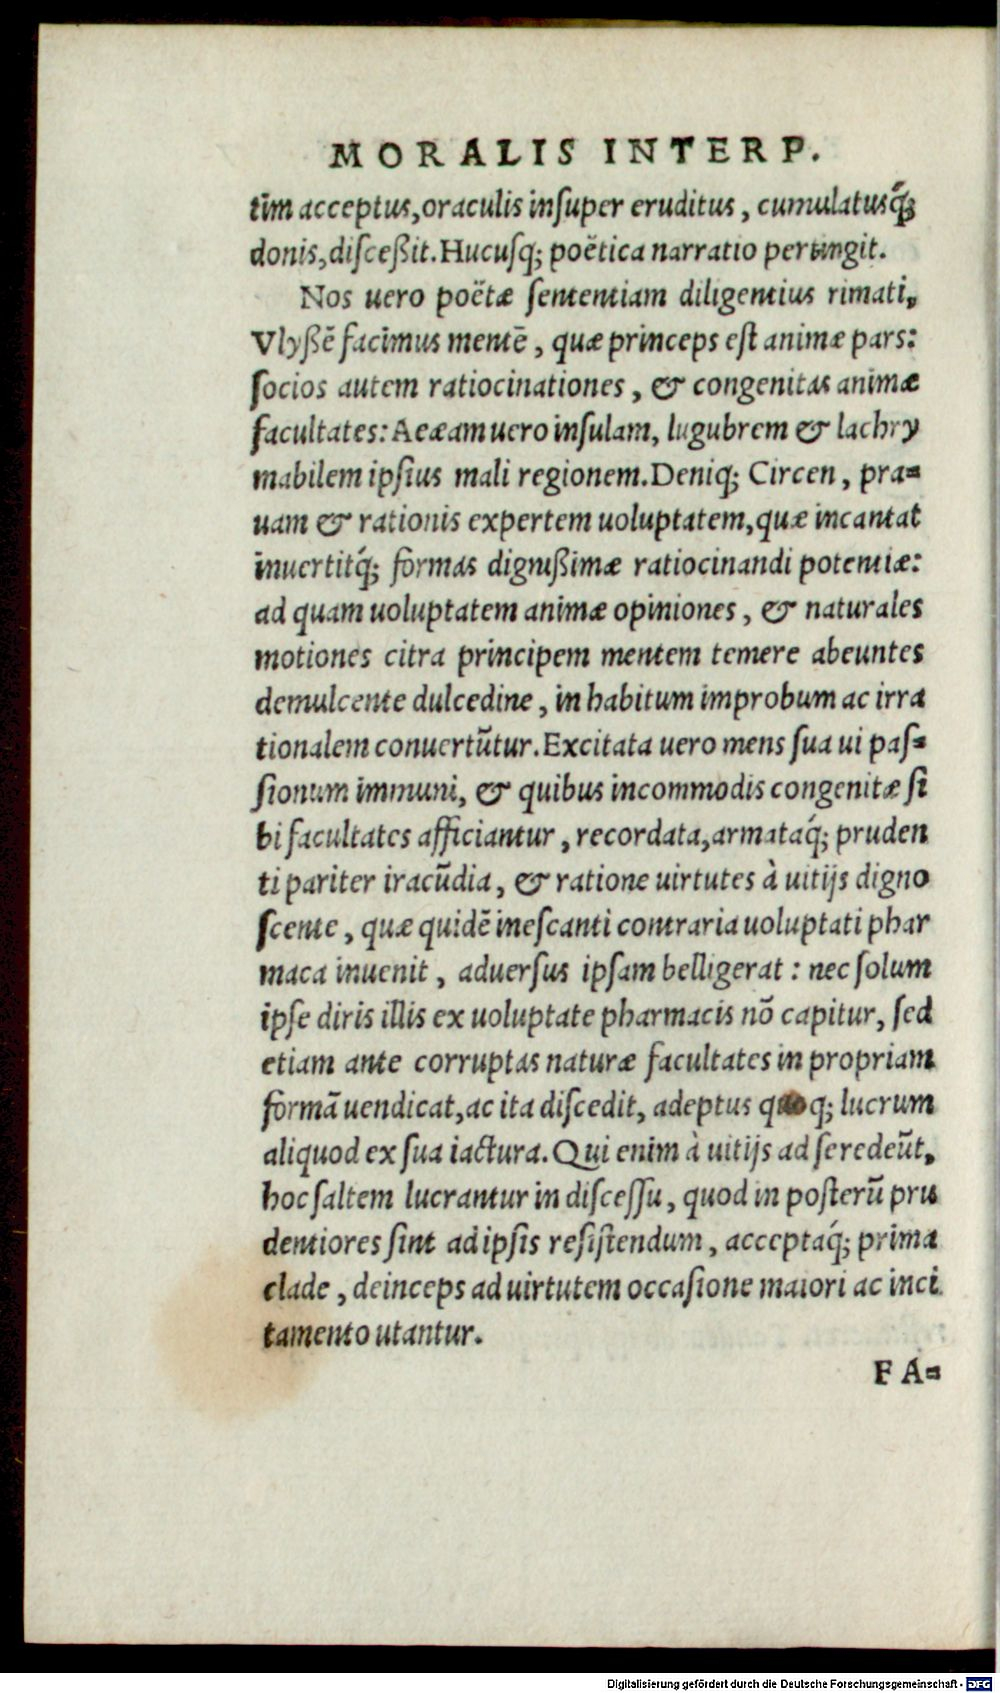 MORALIS INTERP.
tim acceptus, oraculis insuper eruditus, cumulatusq́;
donis, disceßit. Hucusq; poëtica narratio pertingit.
Nos uero poëtæ sententiam diligentius rimati,
Vlyßē facimus mentē, quæ princeps est animæ pars:
socios autem ratiocinationes, & congenitas animæ
facultates: Aeæam uero insulam, lugubrem & lachry
mabilem ipsius mali regionem. Deniq; Circen, pra-
uam & rationis expertem uoluptatem, quæ incantat
inuertitq́; formas dignißimæ ratiocinandi potentiæ:
ad quam uoluptatem animæ opiniones, & naturales
motiones citra principem mentem temere abeuntes
demulcente dulcedine, in habitum improbum ac irra
tionalem conuertūtur. Excitata uero mens sua ui pas-
sionum immuni, & quibus incommodis congenitæ si
bi facultates afficiantur, recordata, armataq́; pruden
ti pariter iracūdia, & ratione uirtutes à uitijs digno
scente, quæ quidē inescanti contraria uoluptati phar
maca inuenit, aduersus ipsam belligerat: nec solum
ipse diris illis ex uoluptate pharmacis nō capitur, sed
etiam ante corruptas naturæ facultates in propriam
formā uendicat, ac ita discedit, adeptus quoq; lucrum
aliquod ex sua iactura. Qui enim à uitijs ad se redeūt,
hoc saltem lucrantur in discessu, quod in posterū pru
dentiores sint ad ipsis resistendum, acceptaq́; prima
clade, deinceps ad uirtutem occasione maiori ac inci
tamento utantur.
FA-
Digitalisierung gefördert durch die Deutsche Forschungsgemeinschaft - DFG